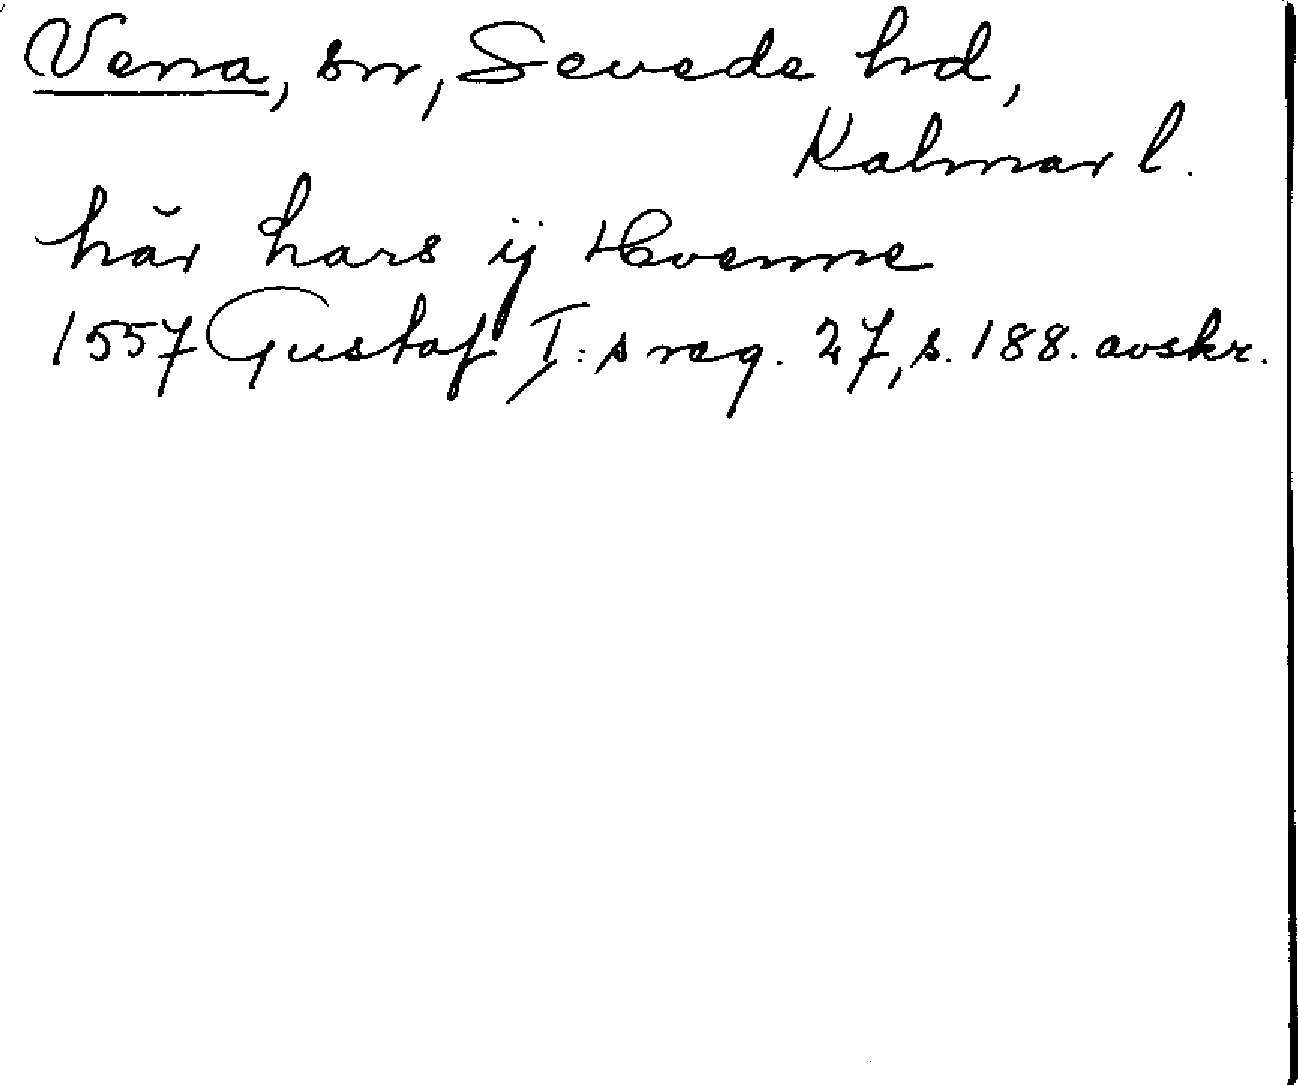 Vena, sn, Sevede hd,
Kalmar l.
här hars ij Hvenne
1557 Gustaf I:s reg. 27, s. 188. avskr.